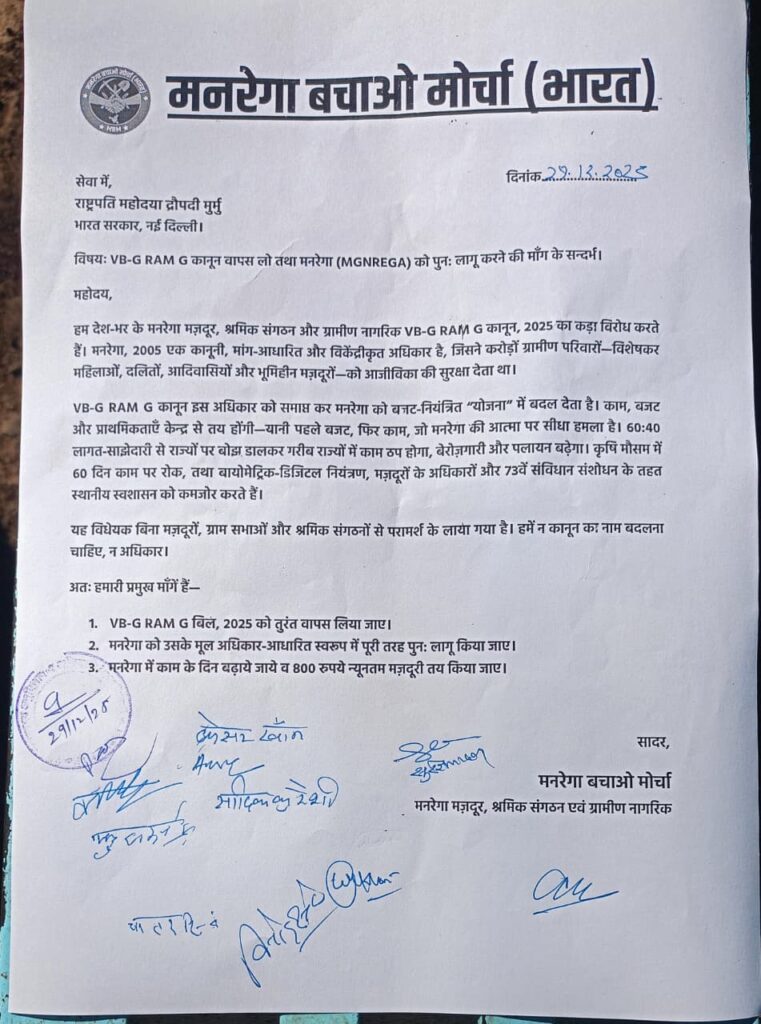 मनरेगा बचाओ मोर्चा
MBM
मनरेगा बचाओ मोर्चा (भारत)
दिनांक 29.12.2025
सेवा में,
राष्ट्रपति महोदया द्रौपदी मुर्मु
भारत सरकार, नई दिल्ली।
विषय: VB-G RAM G कानून वापस लो तथा मनरेगा (MGNREGA) को पुन: लागू करने की माँग के सन्दर्भ।
महोदय,
हम देश-भर के मनरेगा मज़दूर, श्रमिक संगठन और ग्रामीण नागरिक VB-G RAM G कानून, 2025 का कड़ा विरोध करते
हैं। मनरेगा, 2005 एक कानूनी, मांग-आधारित और विकेंद्रीकृत अधिकार है, जिसने करोड़ों ग्रामीण परिवारों—विशेषकर
महिलाओं, दलितों, आदिवासियों और भूमिहीन मज़दूरों—को आजीविका की सुरक्षा देता था।
VB-G RAM G कानून इस अधिकार को समाप्त कर मनरेगा को बजट-नियंत्रित “योजना” में बदल देता है। काम, बजट
और प्राथमिकताएँ केन्द्र से तय होंगी—यानी पहले बजट, फिर काम, जो मनरेगा की आत्मा पर सीधा हमला है। 60:40
लागत-साझेदारी से राज्यों पर बोझ डालकर गरीब राज्यों में काम ठप होगा, बेरोज़गारी और पलायन बढ़ेगा। कृषि मौसम में
60 दिन काम पर रोक, तथा बायोमेट्रिक-डिजिटल नियंत्रण, मज़दूरों के अधिकारों और 73वें संविधान संशोधन के तहत
स्थानीय स्वशासन को कमजोर करते हैं।
यह विधेयक बिना मज़दूरों, ग्राम सभाओं और श्रमिक संगठनों से परामर्श के लाया गया है। हमें न कानून का नाम बदलना
चाहिए, न अधिकार।
अत: हमारी प्रमुख माँगें हैं—
1. VB-G RAM G बिल, 2025 को तुरंत वापस लिया जाए।
2. मनरेगा को उसके मूल अधिकार-आधारित स्वरूप में पूरी तरह पुन: लागू किया जाए।
3. मनरेगा में काम के दिन बढ़ाये जाये व 800 रुपये न्यूनतम मज़दूरी तय किया जाए।
29/12/25
सादर,
मनरेगा बचाओ मोर्चा
मनरेगा मज़दूर, श्रमिक संगठन एवं ग्रामीण नागरिक